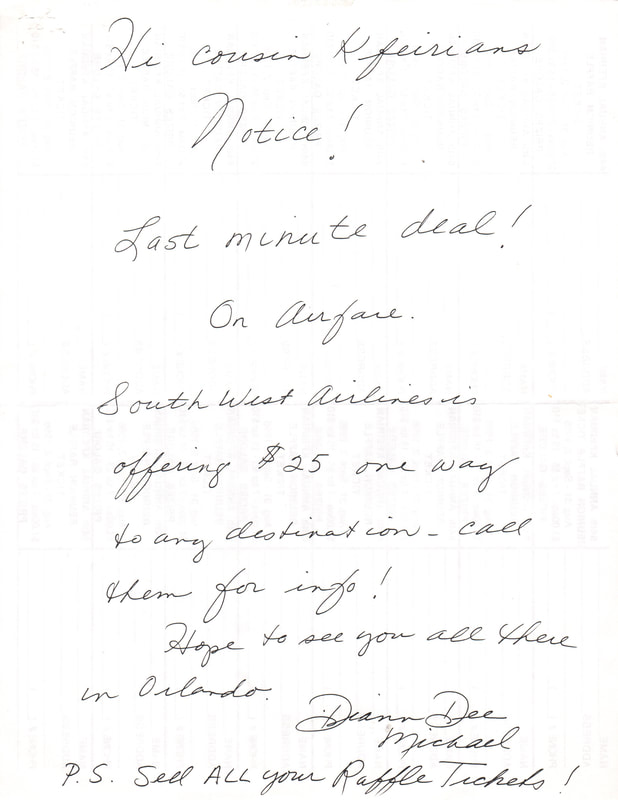 Hi cousin Kfeirians
Notice!
Last minute deal!
On Airfare.
South West Airlines is
offering $25 one way
to any destination - call
them for info!
Hope to see you all there
in Orlando.
Diann Dee
Michael
P.S. Sell ALL your Raffle Tickets!